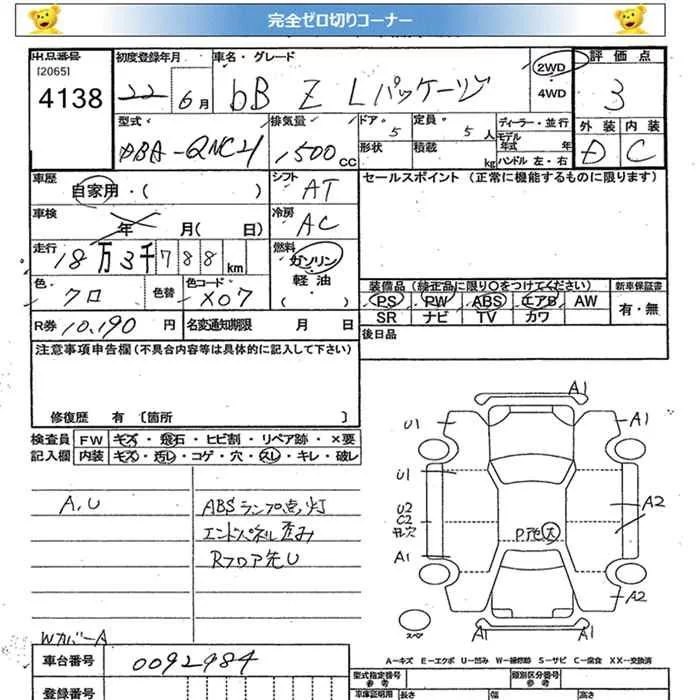 完全ゼロ切りコーナー
出品番号
[2065]
4138
初度登録年月
22 6月
車名・グレード
bB Z Lパッケージ
2WD
4WD
評価点
3
型式
DBA-QNC21
排気量
1500cc
ドア 5
形状
定員 5人
積載 kg
ディーラー・並行
モデル年式 年
ハンドル 左・右
外装 内装
D C
車歴
自家用・( )
シフト
AT
車検
年 月( 日)
冷房
AC
走行
18万3千788km
燃料
ガソリン
軽油
( )
色
クロ
色替
色コード
X07
R券 10,190 円
名変通知期限 月 日
セールスポイント (正常に機能するものに限ります)
装備品 (純正品に限り〇をつけてください)
新車保証書
PS PW ABS エアB AW
SR ナビ TV カワ
有・無
後日品
注意事項申告欄(不具合内容等は具体的に記入して下さい)
修復歴 有 〔箇所 〕
検査員 FW キズ・飛石・ヒビ割・リペア跡・×要
記入欄 内装 キズ・汚レ・コゲ・穴・スレ・キレ・破レ
A,U
ABSランプ点灯
エンドパネル歪み
Rフロア先U
A1
U1
A1
U1
U2
C2
A2
P凹大
A1
A2
スペア
A1
A1
WカバーA
車台番号
0092984
登録番号
A−キズ E−エクボ U−凹み W−補修跡 S−サビ C−腐食 XX−交換済
型式指定番号
参考
類別区分番号
参考
車庫証明用
長さ
幅
高さ